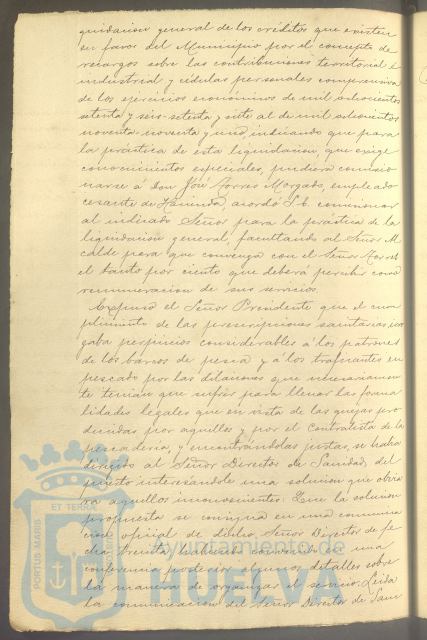 quidacion general de los créditos que existen
en favor del Municipio por el concepto de
recargos sobre las contribuciones territorial e
industrial y cédulas personales comprensiva
de los ejercicios económicos de mil ochocientos
setenta y seis-setenta y siete al de mil ochocientos
noventa noventa y uno, indicando que para
la práctica de esta liquidacion, que exige
conocimientos especiales, pudiera comisio
narse á Don José Torres Morgado, empleado
cesante de Hacienda, acordó S.E. comisionar
al indicado Señor para la práctica de la
liquidacion general, facultando al Señor Al
calde para que convenga con el Señor Torres
el tanto por ciento que deberá percibir como
remuneracion de sus servicios.
Expuso el Señor Presidente que el cum
plimiento de las prescripciones sanitarias, irro
gaba perjuicios considerables á los patrones
de los barcos de pesca y á los traficantes en
pescado por las dilaciones que necesariamen
te tenian que sufrir para llenar las forma
lidades legales que en vista de las quejas pro
ducidas por aquellos y por el Contratista de la
pescaderia, y encontrándolas justas, se habia
dirigido al Señor Director de Sanidad, del
puerto interesándole una solucion que obvia
ra aquellos inconvenientes. Que la solucion
propuesta se consigna en una comunica
cion oficial de dicho Señor Director de fe
cha treinta habiendo convenido en una
conferencia posterior algunos detalles sobre
la manera de organizar el servicio. Leida
la comunicacion del Señor Director de Sani
PORTUS MARIS ET TERRAE
Ayuntamiento de
HUELVA